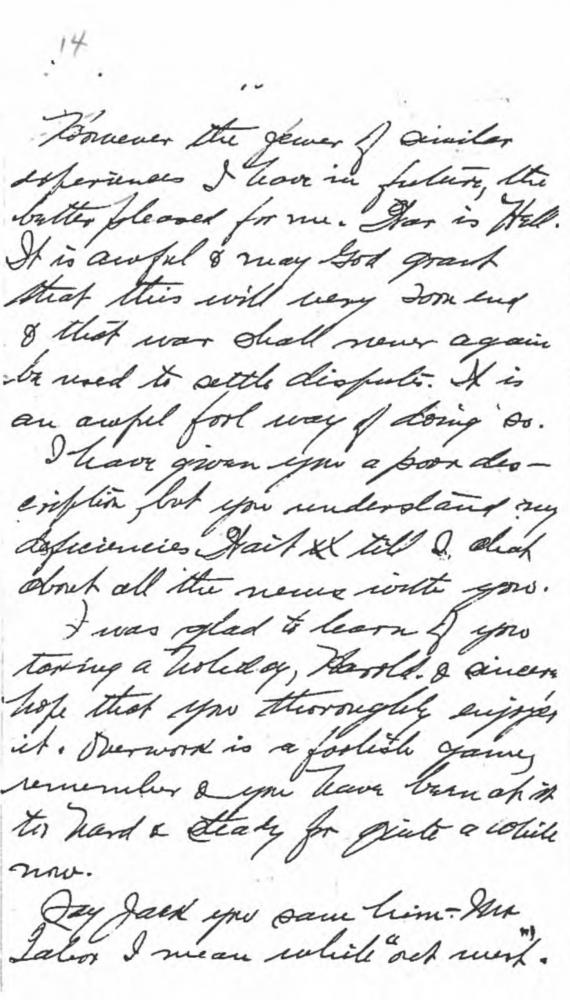 14
However the fewer of similar
experiences I have in future, the
better pleased for me. War is Hell.
It is awful & may God grant
that this will very soon end
& that war shall never again
be used to settle disputes. It is
an awful fool way of doing so.
I have given you a poor des-
cription, but you understand my
deficiencies. Wait till I chat
about all the news with you.
I was glad to learn of you
taking a holiday, Harold. I sincere
hope that you thoroughly enjoyed
it. Overwork is a foolish game,
remember & you have been at it
too hard & steady for quite a while
now.
Say Jack you saw him - Mr
I mean while "out west".